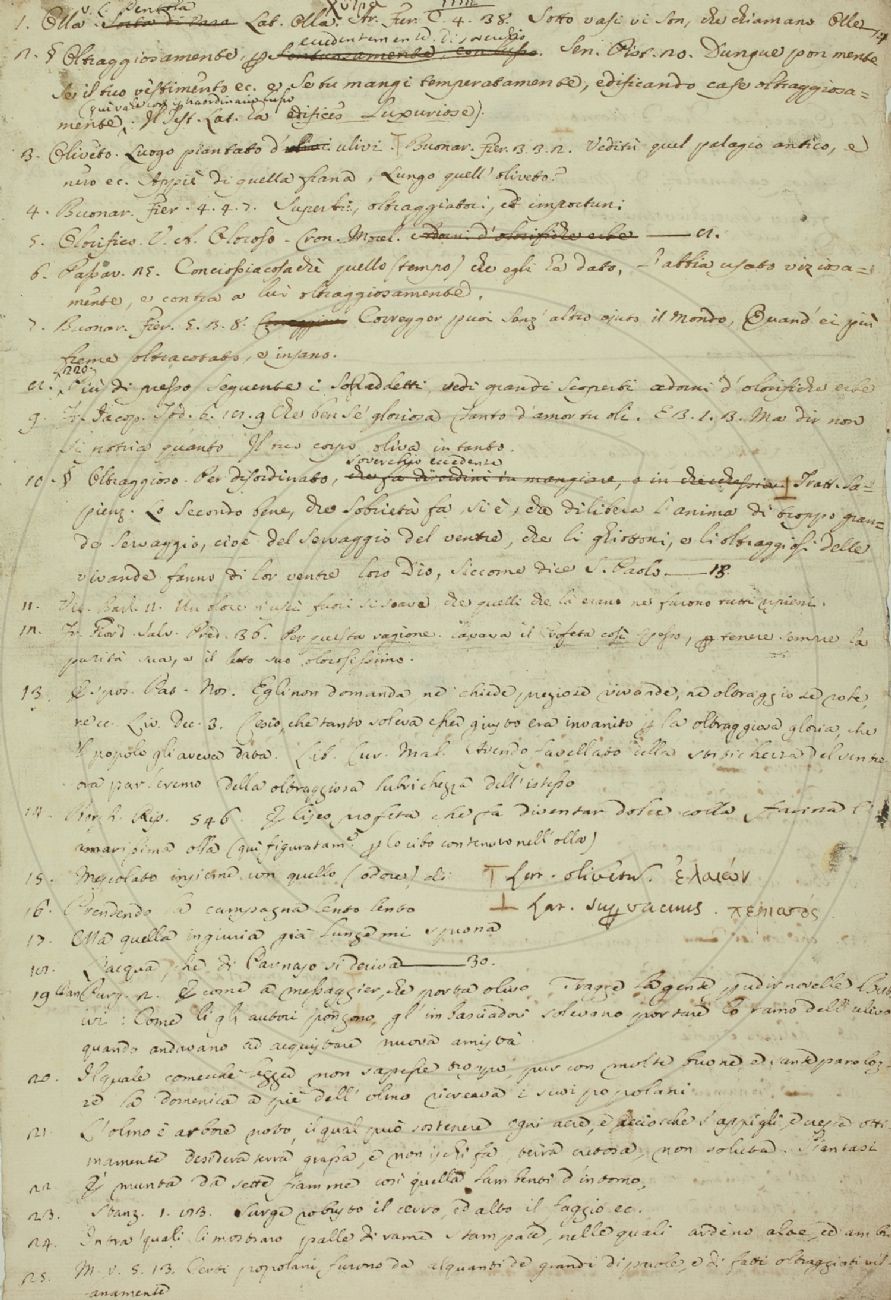 v. l. Pentola
1. Olla Sorta di vaso Lat. Olla. Gr. χύτρα Fier. C. 4. 38. Sotto vasi vi son, che chiamano Olle
2. § Oltraggiosamente, evidentemente, di soverchio Sen. Pist. 20. Dunque pon mente
se il tuo vestimento ec. e se tu mangi temperatamente, edificando case oltraggiosa=
mente. Il test. Lat. ha edifices luxuriose).
3. Oliveto. Luogo piantato d' ulivi. Buonar. Fier. 3. 3. 2. Vedisti quel palagio antico, e
nero ec. Appiè di quella frana, Lungo quell' oliveto?
4. Buonar. Fier. 4. 4. 7. Superbi, oltraggiatori, ed importuni
5. Olorifico. V. A. Oloroso. Cron. Morel. adorni d'olorifiche erbe
6. Passav. Conciossiacosachè quello (tempo) che egli ha dato, l'abbia usato viziosa=
mente, e contra a lui oltraggiosamente.
7. Buonar. Fier. 5. 3. 8. Correggia Corregger puoi senz' altro ajuto il mondo, Quand' ei più
freme oltracotato, e insano.
220
Più di presso seguente i sopraddetti, vedi grandi scoperti adorni d'olorifiche erbe
9. Fr. Jacop. Tod. Che ben se' gloriosa Canto d'amor tu oli. E 3. 1. 3. Ma dir non
si potria quanto Il tuo corpo oliva in tanto.
10. § Oltraggioso. Per disordinato, soverchio eccedente Tratt. Sa=
pienz. Lo secondo bene, che sobrietà fa, si è, che dilibera l'anima di troppo gran=
de servaggio, cioè del servaggio del ventre, che li ghiottoni, e li oltraggiosi delle
vivande fanno di lor ventre loro Dio, siccome dice S. Paolo 18.
11. Vit. Barl. 11. Un olore n'uscì fuori sì soave che quelli che là erano ne furono tutti ripieni.
12. Fr. Giord. Salv. Pred. 36. Per questa ragione lavava il Profeta così spesso, p tenere sempre la
purità sua, e il letto suo olorosissimo.
13. Espos. Pat. Nos. Egli non domanda, nè chiede preziose vivande, nè oltraggiose robe,
ec. Liv. Dec. 3. Cesio, che tanto soleva essere giusto era invanito p la oltraggiosa gloria, che
il popolo gli aveva data. Lib. Cur. Mal. Avendo favellato della stitichezza del ventre
ora parleremo della oltraggiosa lubrichezza dell' istesso
14. Borgh. Rip. 546. Eliseo profeta che fa diventar dolce colla farina l'
amarissima olla (qui figuratam.e p lo cibo contenuto nell' olla)
15. Mescolato insieme con quello (odore) di ⊤ Lat. olivetum. ἐλαιών
16. Prendendo la campagna lento lento ⊥ Lat. supervacuus. περισσός.
17. Olla quella ingiuria già lunge mi sprona
L'acqua, che di Parnaso si deriva 30.
19. Dan. Purg. 2. E come a messaggier, che porta olivo Tragge la gente p udir novelle But.
ivi: Come li gli autori pongono, gl'imbasciadori solevano portare lo ramo dell' ulivo
quando andavano ad acquistare nuova amistà
20. Il quale comecchè legger non sapesse troppo, pur con molte buone e sante parolozz-
ze la domenica a piè dell' olmo ricreava i suoi popolani
21. L'olmo è arbore noto, il qual può sostenere ogni aere, e acciocchè s'appigli, e cresca otti-
mamente desidera terra grassa, e non ischifa terra cretosa, non soluta. Piantasi
22. E munta da sette fiamme così quella lambenti d'intorno,
23. Stanz. 1. Surge robusto il cerro, ed alto il faggio ec.
24. Intra' quali si mostraro palle di rame stampate, nelle quali ardeno aloe, ed ambr
25. M. V. 8. 13. Certi popolani furono da alquanti de' grandi di parole, e di fatti oltraggiati vil-
anamente